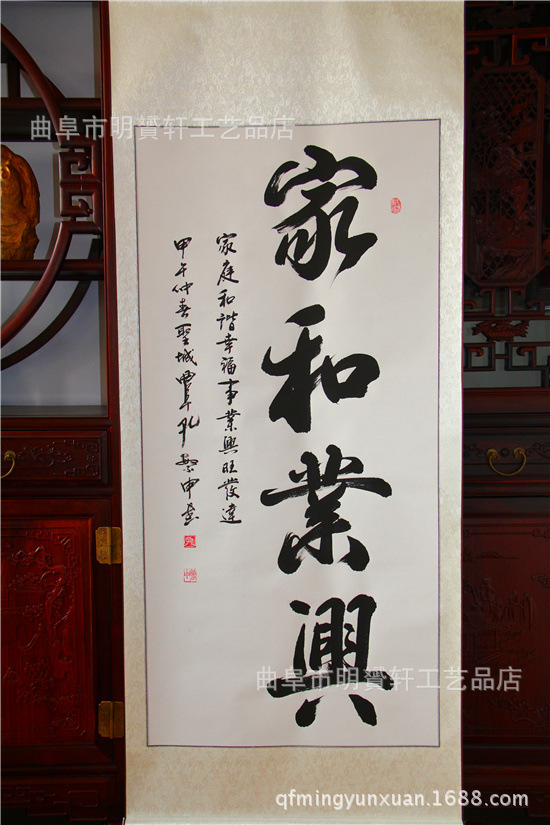 家和業興
家庭和谐幸福事業興旺發達
甲午仲春聖城覃孔繁申書
曲阜市明贇轩工艺品店
曲阜市明贇轩工艺品店
qfmingyunxuan.1688.com